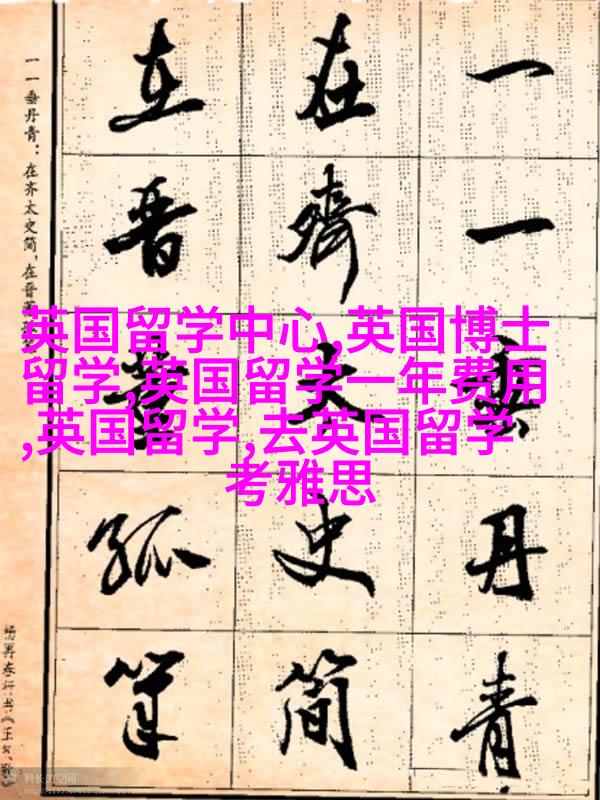 一一垂丹青
在齐太史简
在晋董狐筆
一一垂丹青：在齐太史简，在晋
英国留学中心,英国博士
留学,英国留学一年费用
,英国留学,去英国留学
考雅思
科长的空间